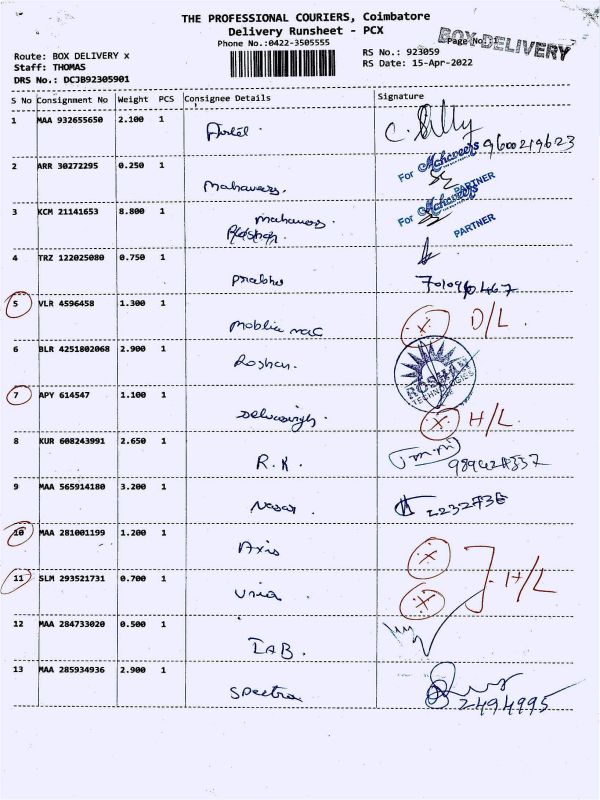 THE PROFESSIONAL COURIERS, Coimbatore
Delivery Runsheet - PCX
Phone No.:0422-3505555
Page No.:
BOX DELIVERY
Route: BOX DELIVERY x
Staff: THOMAS
DRS No.: DCJB92305901
RS No.: 923059
RS Date: 15-Apr-2022
S No Consignment No Weight PCS Consignee Details Signature
1 MAA 932655650 2.100 1
9600219623
2 ARR 30272295 0.250 1 Mahaveers.
For Mahaveers
PARTNER
3 KCM 21141653 8.800 1 Mahaveers
For Mahaveers
PARTNER
4 TRZ 122025080 0.750 1 Prabhu
5 VLR 4596458 1.300 1 D/L.
6 BLR 4251802068 2.900 1 Roshan.
ROSHAN TECHNOLOGIES
7 APY 614547 1.100 1 Selvasingh. H/L
8 KUR 608243991 2.650 1 R.K.
9 MAA 565914180 3.200 1
10 MAA 281001199 1.200 1 Axis
11 SLM 293521731 0.700 1 H/L
12 MAA 284733020 0.500 1
13 MAA 285934936 2.900 1 Spectra
2494995